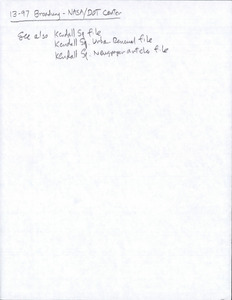 13-97 Broadway - NASA/DOT Center
See also Kendall Sq file
Kendall Sq. Urban Renewal file
Kendall Sq. Newspaper articles file